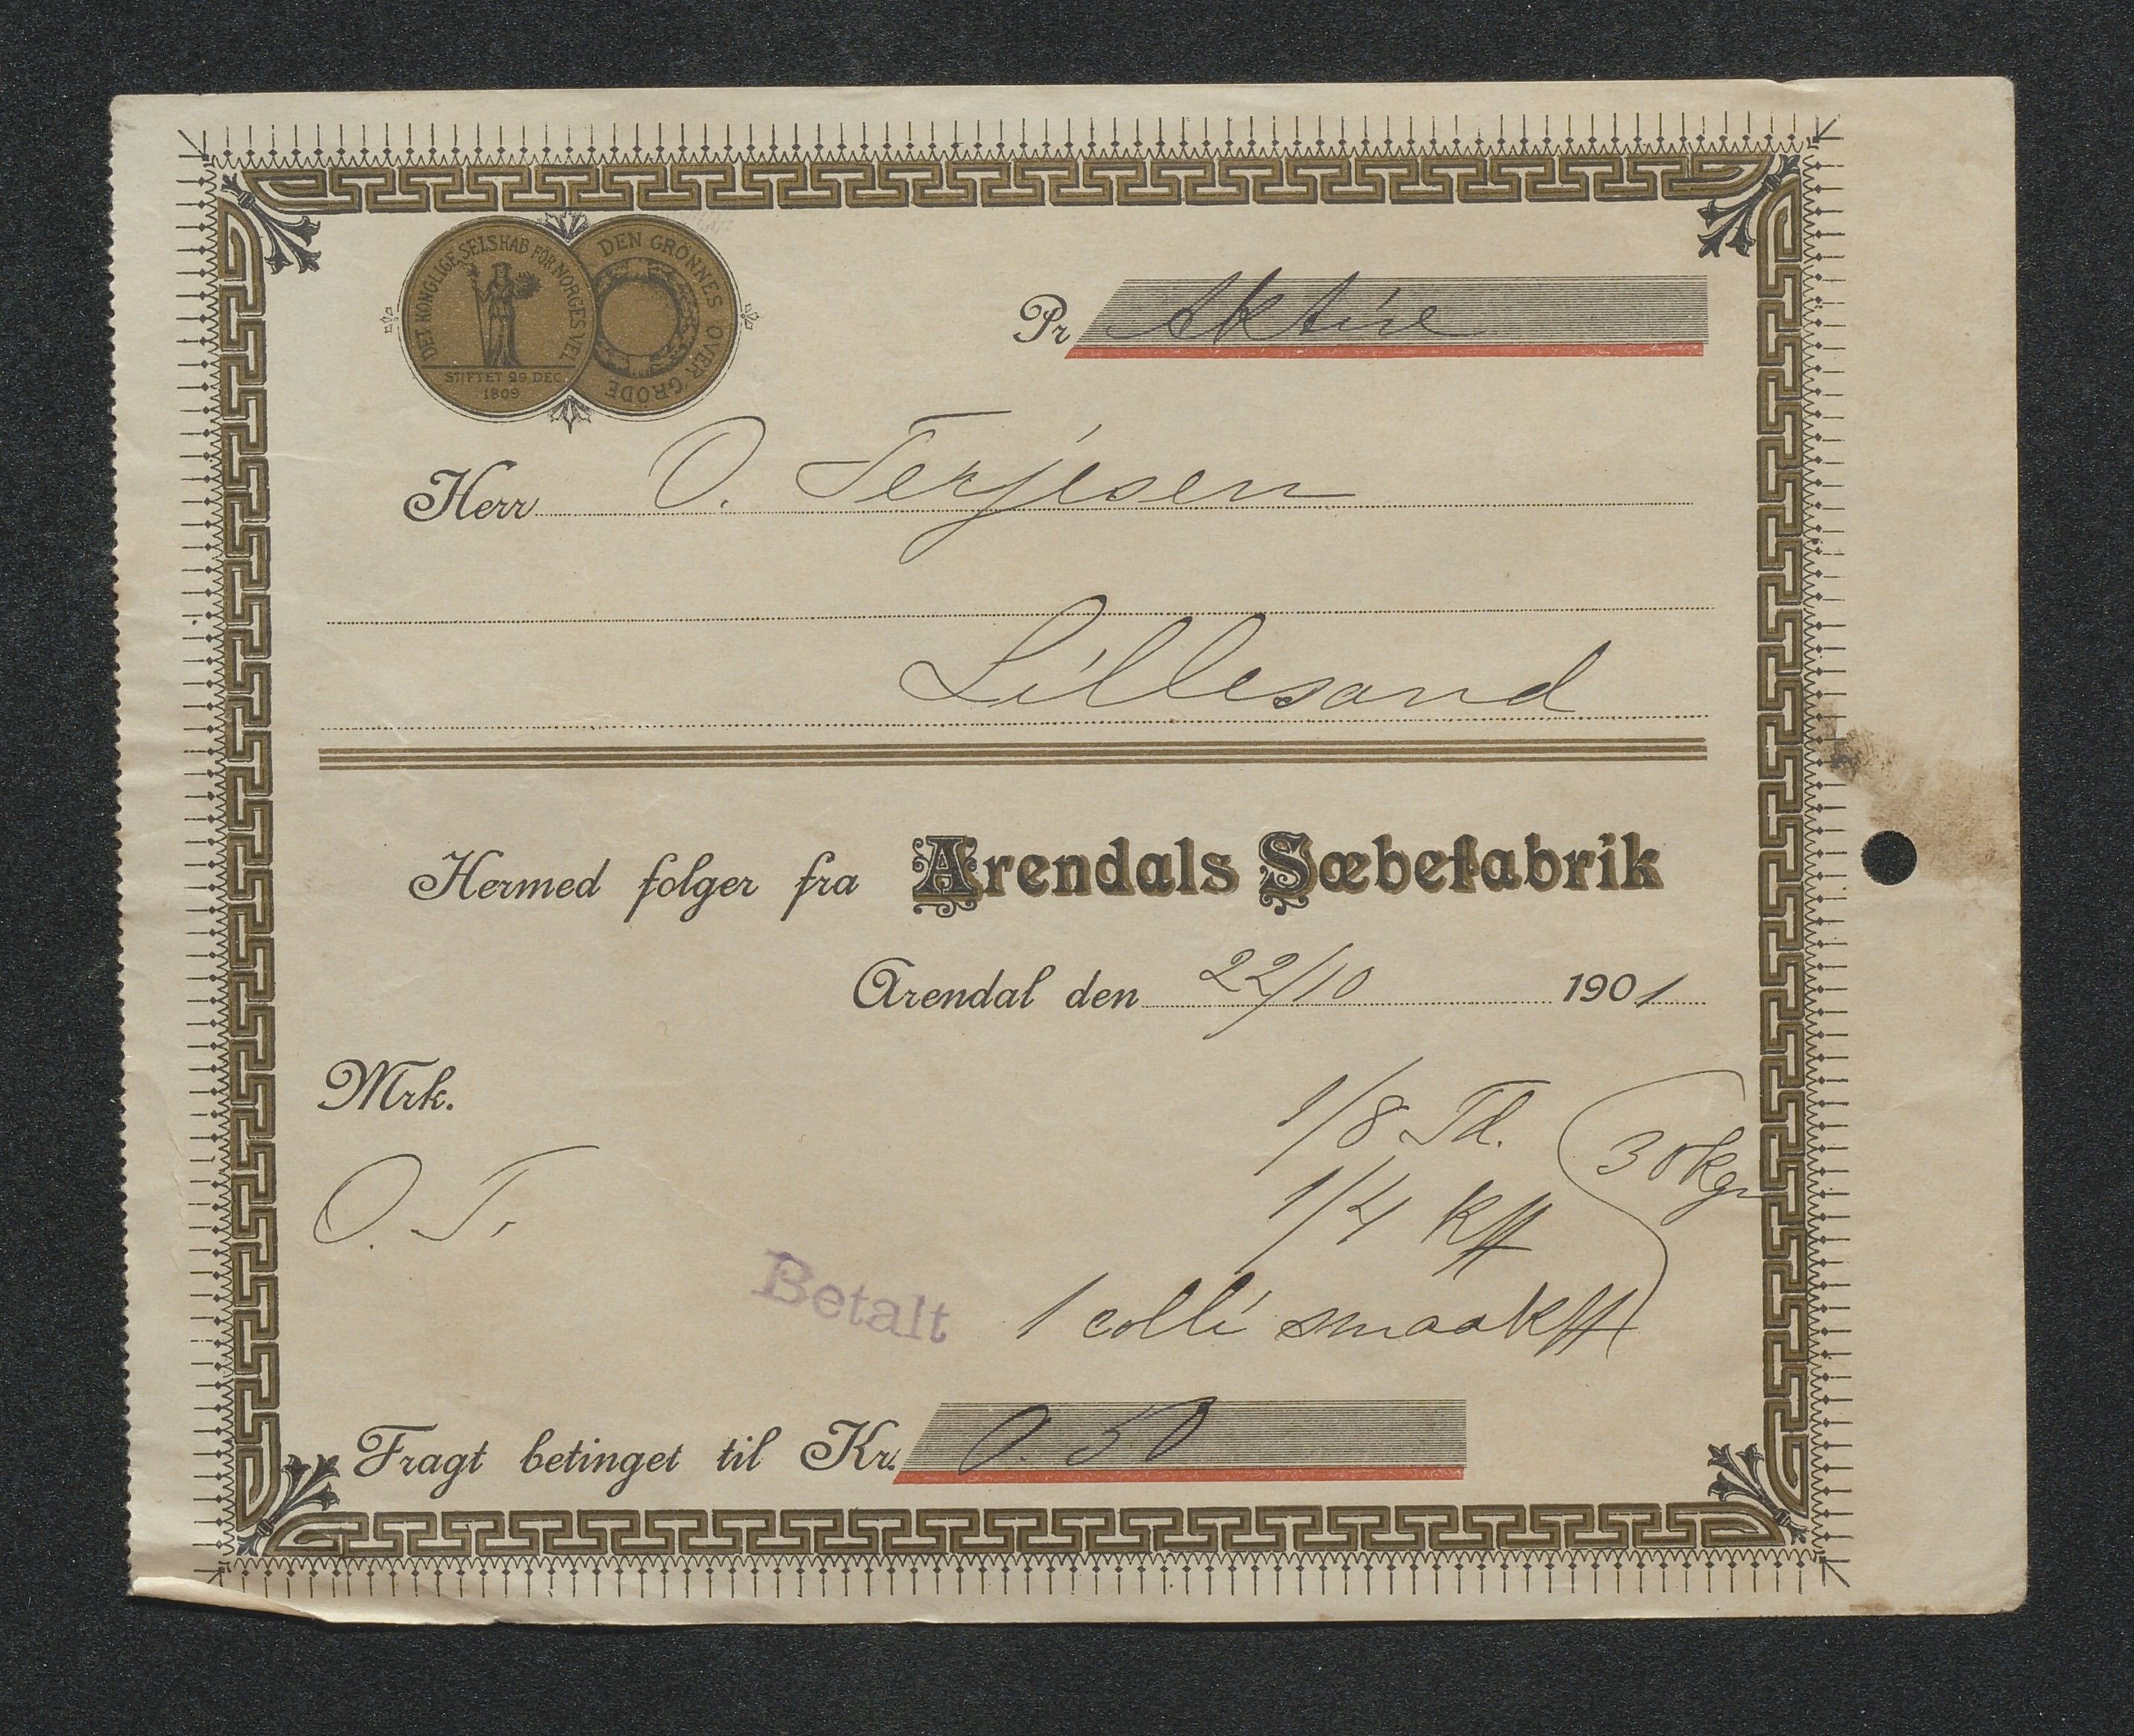 DET KONGLIGE SELSKAB FOR NORGES VEL
STIFTET 29 DEC.
1809
DEN GRÖNNES OVER GRÖDE
Pr Aktive
Herr O. Terjesen
Lillesand
Hermed folger fra Arendals Sæbefabrik
Arendal den 22/10 1901
Mrk.
O. T.
1/8 Td.
1/4 kss
30 kgr
1 colli smaakss
Betalt
Fragt betinget til Kr. 0.50